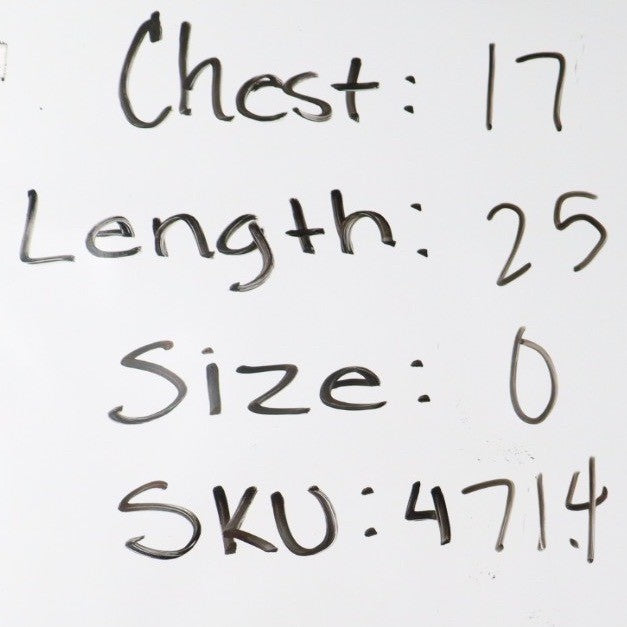 Chest: 17
Length: 25
Size: 0
SKU: 471.4